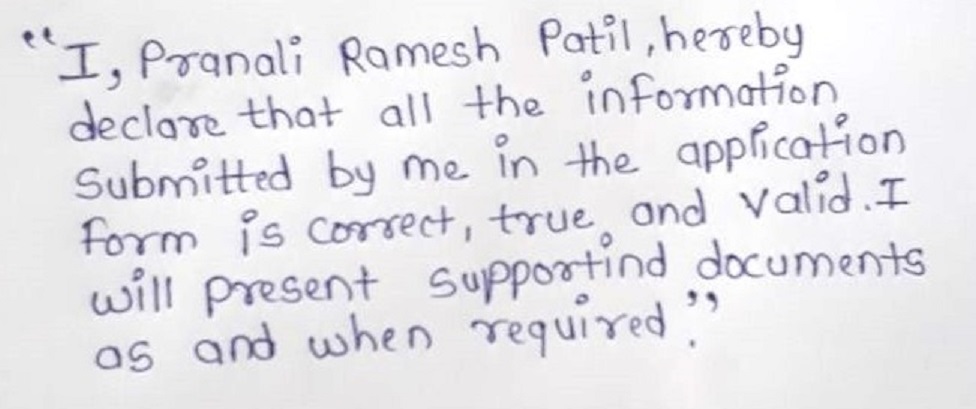 "I, Pranali Ramesh Patil, hereby
declare that all the information
Submitted by me in the application
form is correct, true and valid. I
will present supportind documents
as and when required."